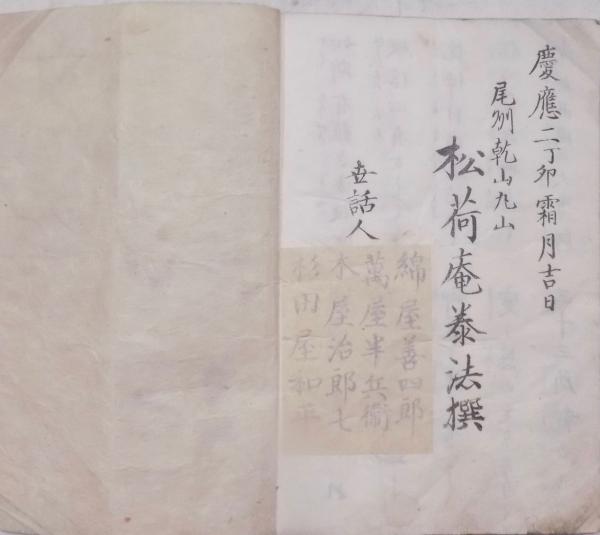 慶應二丁卯霜月吉日
尾州乾山九山
松荷庵泰法撰
世話人
綿屋善四郎
萬屋半兵衞
木屋治郎七
杉田屋和平